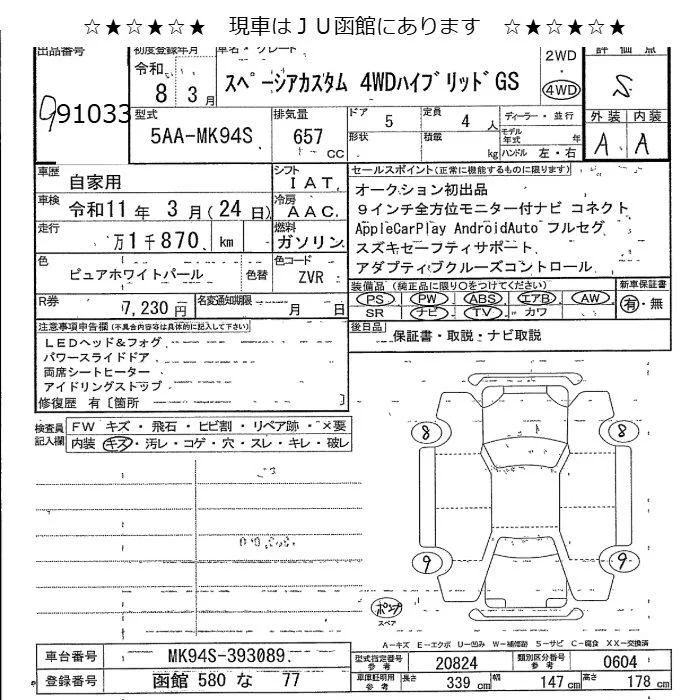 ☆★☆★☆★ 現車はＪＵ函館にあります ☆★☆★☆★
出品番号
91033
初度登録年月
令和
8 3月
車名・グレード
スペーシアカスタム 4WDハイブリッドGS
2WD
・
4WD
評価点
S
型式
5AA-MK94S
排気量
657 CC
ドア
5
定員
4 人
形状
積載
kg
ディーラー・並行
モデル年式 年
ハンドル 左・右
外装 内装
A A
車歴
自家用
シフト
IAT
車検
令和11年 3月(24日)
冷房
AAC
走行
万1千870 km
燃料
ガソリン
色
ピュアホワイトパール
色替
色コード
ZVR
R券
7,230円
名変通知期限
月 日
セールスポイント(正常に機能するものに限ります)
オークション初出品
9インチ全方位モニター付ナビ コネクト
AppleCarPlay AndroidAuto フルセグ
スズキセーフティサポート
アダプティブクルーズコントロール
装備品(純正品に限り○をつけてください)
PS PW ABS エアB AW
SR ナビ TV カワ
新車保証書
有・無
後日品
保証書・取説・ナビ取説
注意事項申告欄(不具合内容等は具体的に記入して下さい)
LEDヘッド&フォグ
パワースライドドア
両席シートヒーター
アイドリングストップ
修復歴 有〔箇所 〕
検査員記入欄
FW キズ・飛石・ヒビ割・リペア跡・×要
内装 キズ・汚レ・コゲ・穴・スレ・キレ・破レ
8 8
9 9
ポンプ
スペア
A−キズ E−エクボ U−凹み W−補修跡 S−サビ C−腐食 XX−交換済
車台番号
MK94S-393089
登録番号
函館 580 な 77
型式指定番号
参考
20824
類別区分番号
参考
0604
車庫証明用
参考
長さ 339 cm 幅 147 cm 高さ 178 cm